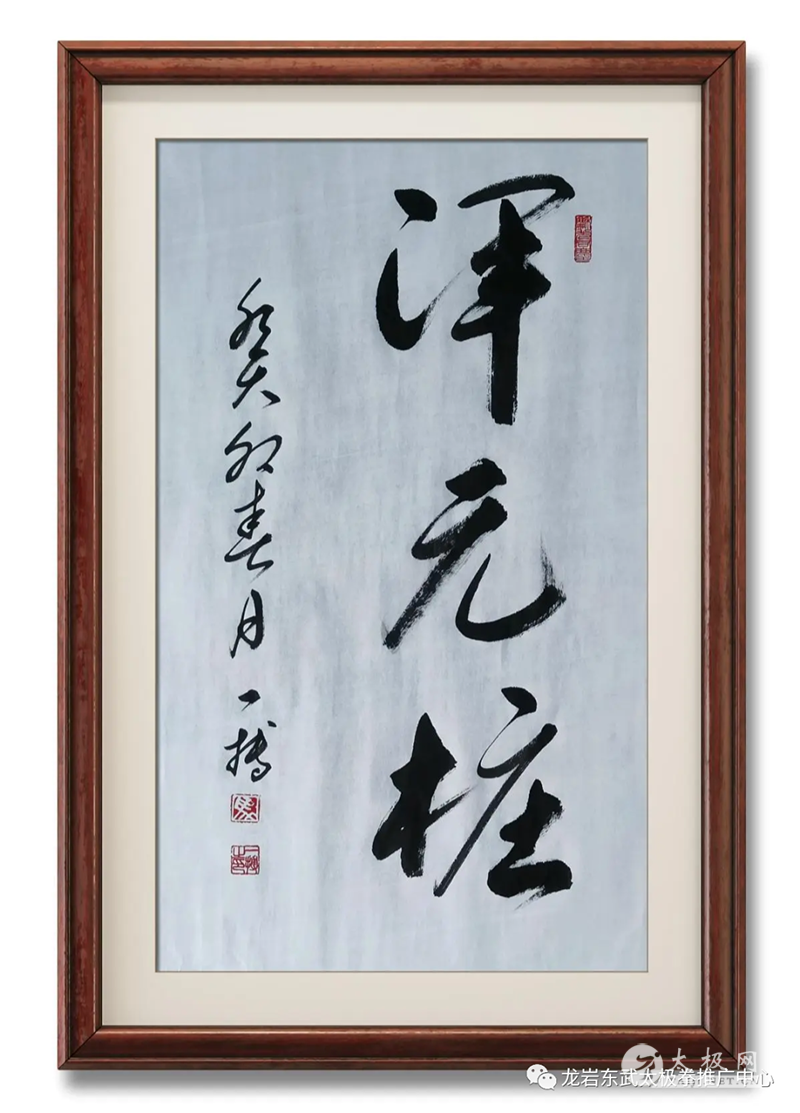 浑元桩
癸卯春月 一搏
太极网
龙岩东武太极拳推广中心